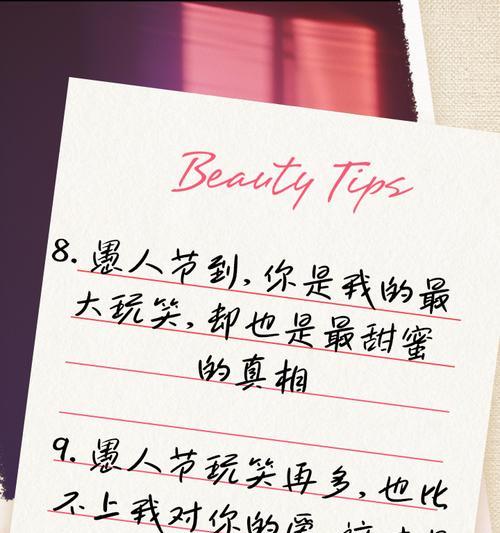 Beauty Tips
8. 愚人节到,你是我的最
大玩笑,却也是最甜蜜
的真相
9. 愚人节玩笑再多,也比
不上我对你的爱